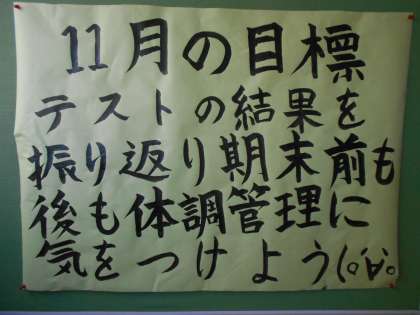 11月の目標
テストの結果を
振り返り期末前も
後も体調管理に
気をつけよう(°∀°)